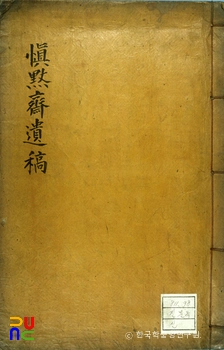 愼黙齋遺稿
ⓒ 한국학중앙연구원